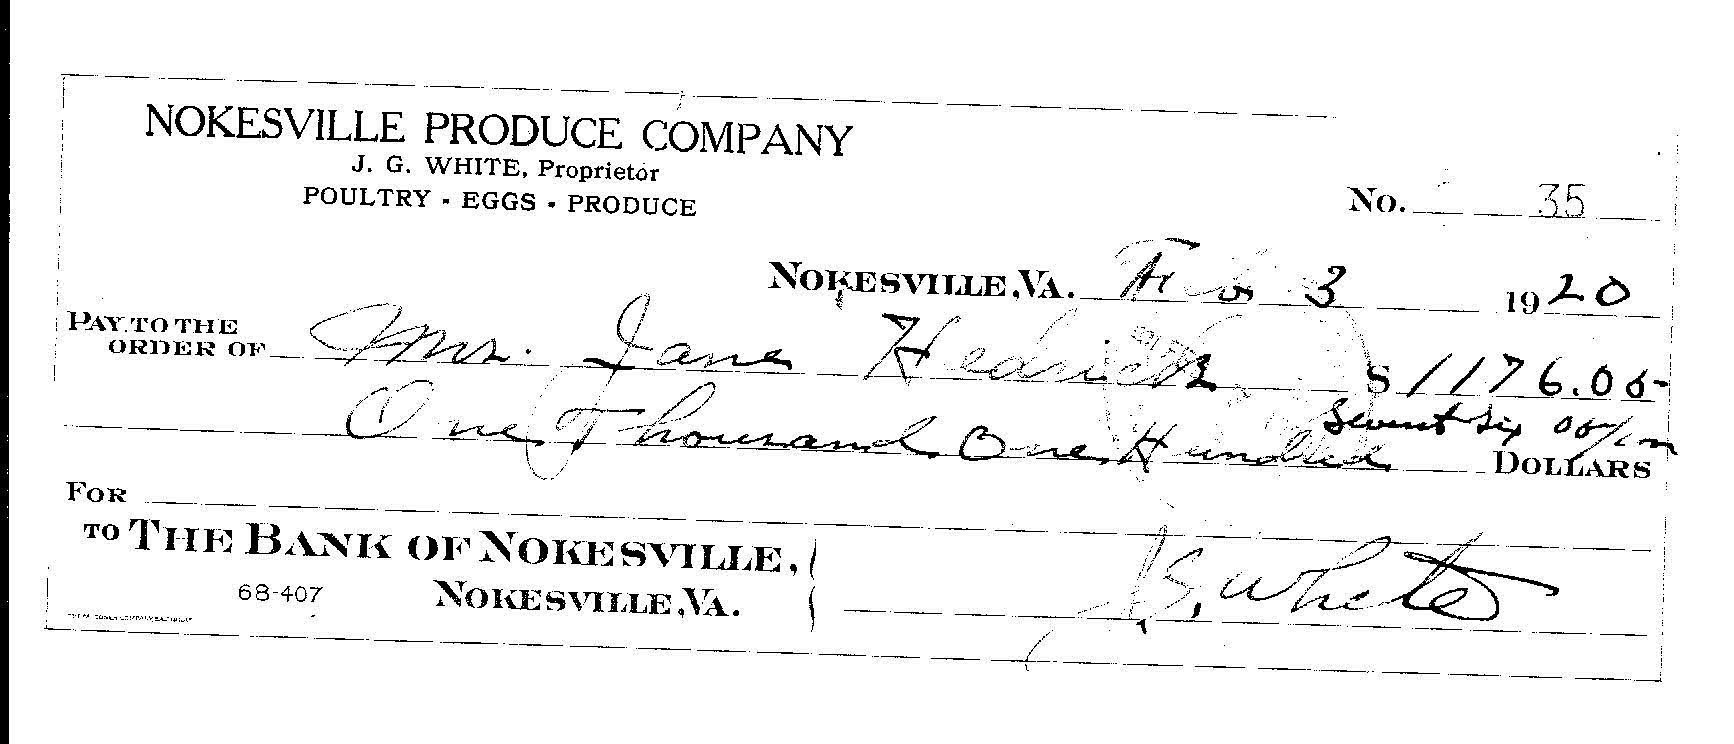 NOKESVILLE PRODUCE COMPANY
J. G. WHITE, Proprietor
POULTRY - EGGS - PRODUCE
No. 35
NOKESVILLE, VA. Feb 3 1920
PAY TO THE ORDER OF Mrs. Jane Hedrick $ 1176.00
One Thousand One Hundred Sevent Six 00/100 DOLLARS
FOR
TO THE BANK OF NOKESVILLE,
68-407 NOKESVILLE, VA.
J. G. White